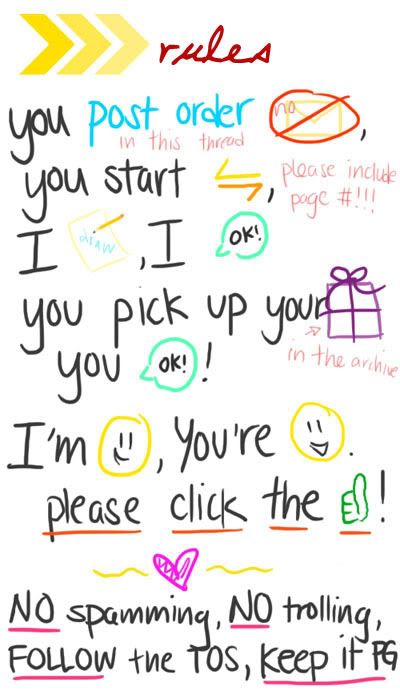 rules
you post order no,
in this thread
you start , please include
page #!!!
I draw, I OK!
you pick up your
in the archive
you OK!!
I'm , You're .
please click the !
NO spamming, NO trolling,
FOLLOW the TOS, Keep it PG